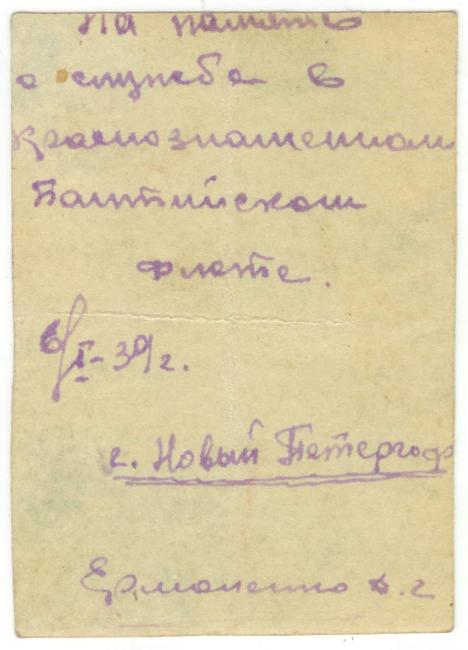 На память
о службе в
краснознаменном
Балтийском
флоте.
6/I-39г.
г. Новый Петергоф
Ермоленко